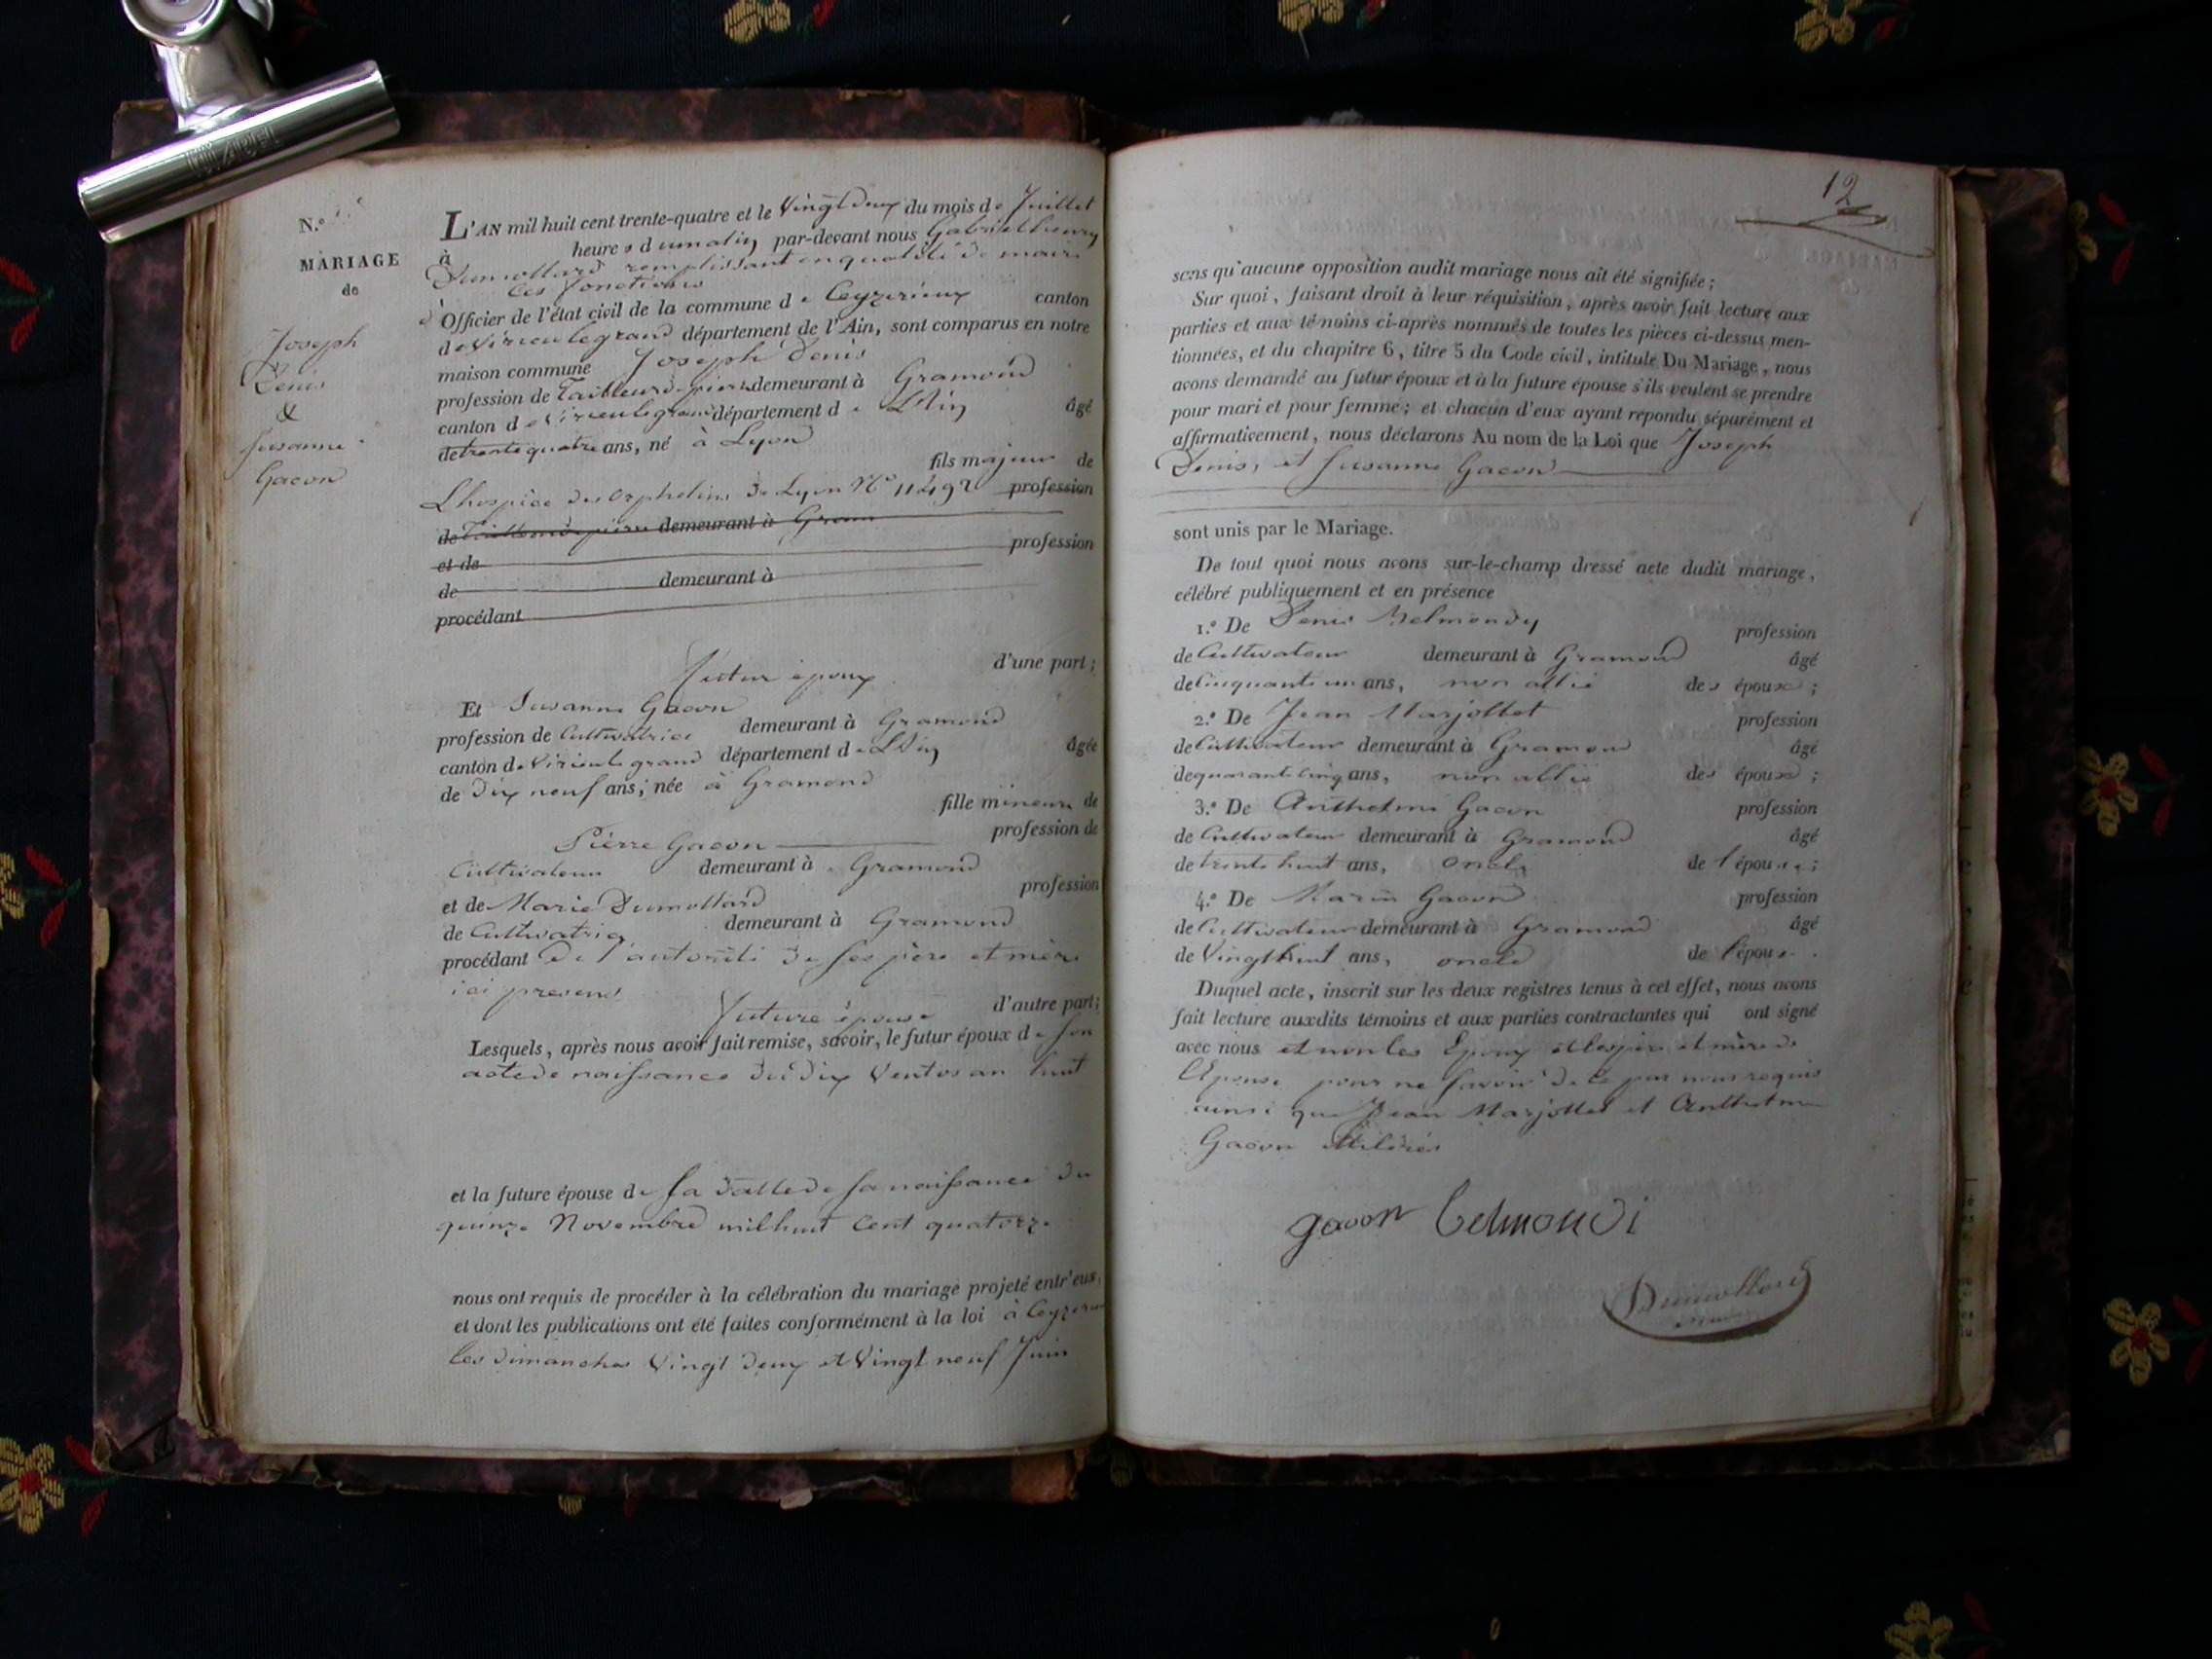 N.º
MARIAGE
de
Joseph
Denis
&
Susanne
Gacon
L'AN mil huit cent trente-quatre et le Vingt deux du mois de Juillet
à heures du matin par-devant nous Gabriel henry
Dumollard remplissant en qualité de maire
les fonctions
d'Officier de l'état civil de la commune de Ceyzerieux canton
de Virieulegrand département de l'Ain, sont comparus en notre
maison commune Joseph Denis
profession de Tailleur de pierre demeurant à Gramond
canton de Virieulegrand département de L'Ain âgé
de trente quatre ans, né à Lyon
fils majeur de
L'hospice des Orphelins de Lyon Nº 11492 profession
de Tailleur de pierre demeurant à Gram
et de profession
de demeurant à
procédant
futur époux d'une part;
Et Susanne Gacon
profession de Cultivatrice demeurant à Gramond
canton de Virieulegrand département de L'Ain âgée
de dix neuf ans; née à Gramond
fille mineure de
Pierre Gacon profession de
Cultivateur demeurant à Gramond
et de Marie Dumollard profession
de Cultivatrice demeurant à Gramond
procédant de l'autorité de ses père et mère
ici presens
future épouse d'autre part;
Lesquels, après nous avoir fait remise, savoir, le futur époux de son
acte de naissance du dix Ventos an huit
et la future épouse de sa datte de sa naissance du
quinze Novembre mil huit Cent quatorze
nous ont requis de procéder à la célébration du mariage projeté entr'eux,
et dont les publications ont été faites conformément à la loi à Ceyzerieu
les dimanches Vingt deux et Vingt neuf Juin
12
sans qu'aucune opposition audit mariage nous ait été signifiée;
Sur quoi, faisant droit à leur réquisition, après avoir fait lecture aux
parties et aux témoins ci-après nommés de toutes les pièces ci-dessus men-
tionnées, et du chapitre 6, titre 5 du Code civil, intitulé Du Mariage, nous
avons demandé au futur époux et à la future épouse s'ils veulent se prendre
pour mari et pour femme; et chacun d'eux ayant répondu séparément et
affirmativement, nous déclarons Au nom de la Loi que Joseph
Denis, et Susanne Gacon
sont unis par le Mariage.
De tout quoi nous avons sur-le-champ dressé acte dudit mariage,
célébré publiquement et en présence
1.º De Denis Belmondy profession
de Cultivateur demeurant à Gramond âgé
de Cinquante un ans, non allié des époux;
2.º De Jean Marjollet profession
de Cultivateur demeurant à Gramond âgé
de quarante cinq ans, non allié des époux;
3.º De Anthelme Gacon profession
de Cultivateur demeurant à Gramond âgé
de trente huit ans, oncle de l'épouse;
4.º De Marin Gacon profession
de Cultivateur demeurant à Gramond âgé
de Vingt huit ans, oncle de l'épouse.
Duquel acte, inscrit sur les deux registres tenus à cet effet, nous avons
fait lecture auxdits témoins et aux parties contractantes qui ont signé
avec nous et non les Epoux et les père et mère de
l'Epouse pour ne savoir de ce par nous requis
ainsi que Jean Marjollet et Anthelme
Gacon
gacon belmondi
Dumollard